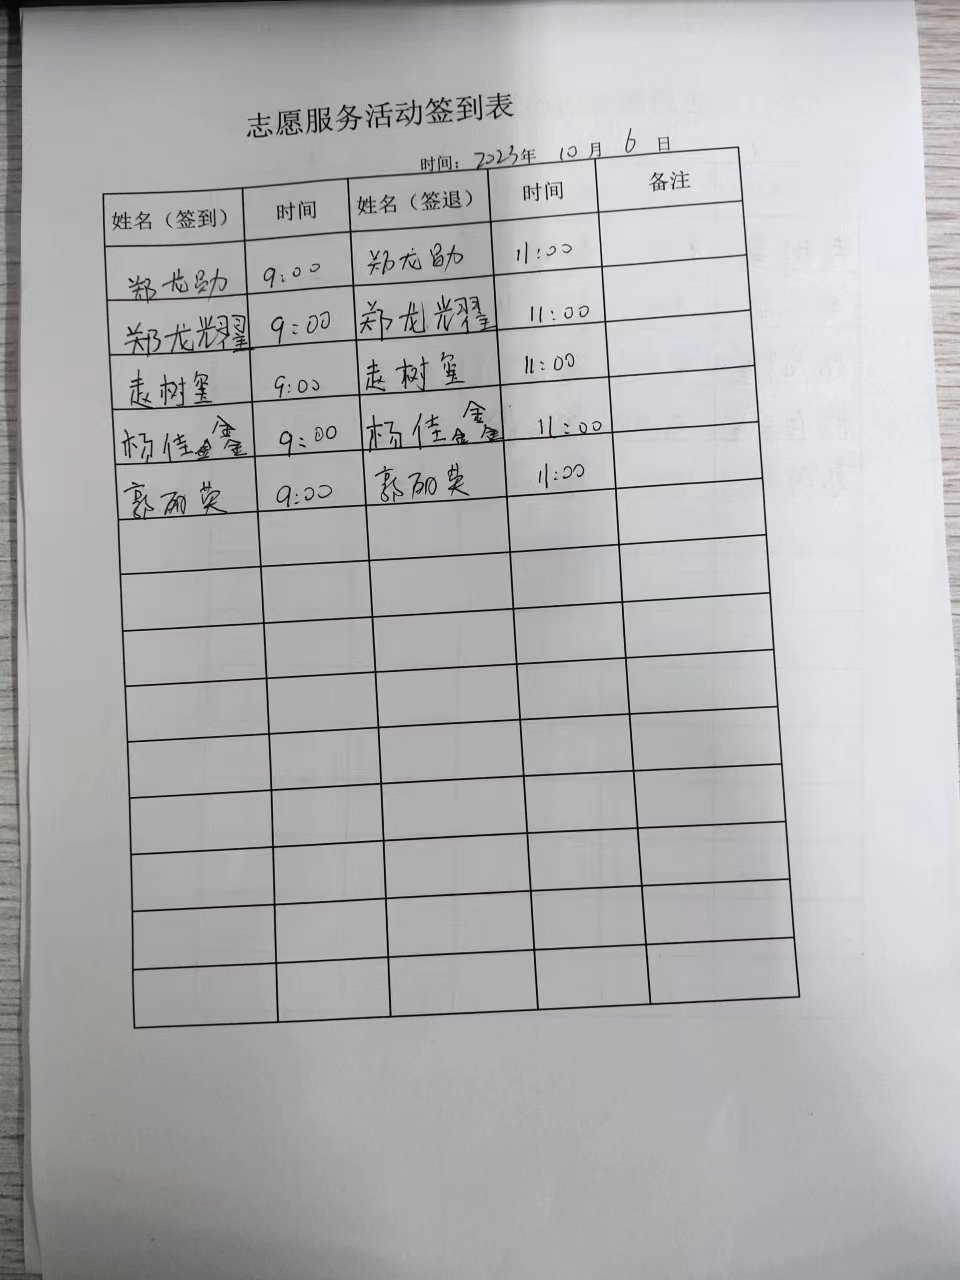 志愿服务活动签到表
时间：2023年 10月 6日
姓名（签到） 时间 姓名（签退） 时间 备注
郑龙勋 9:00 郑龙勋 11:00
郑龙耀 9:00 郑龙耀 11:00
赵树玺 9:00 赵树玺 11:00
杨佳鑫 9:00 杨佳鑫 11:00
郭丽英 9:00 郭丽英 11:00